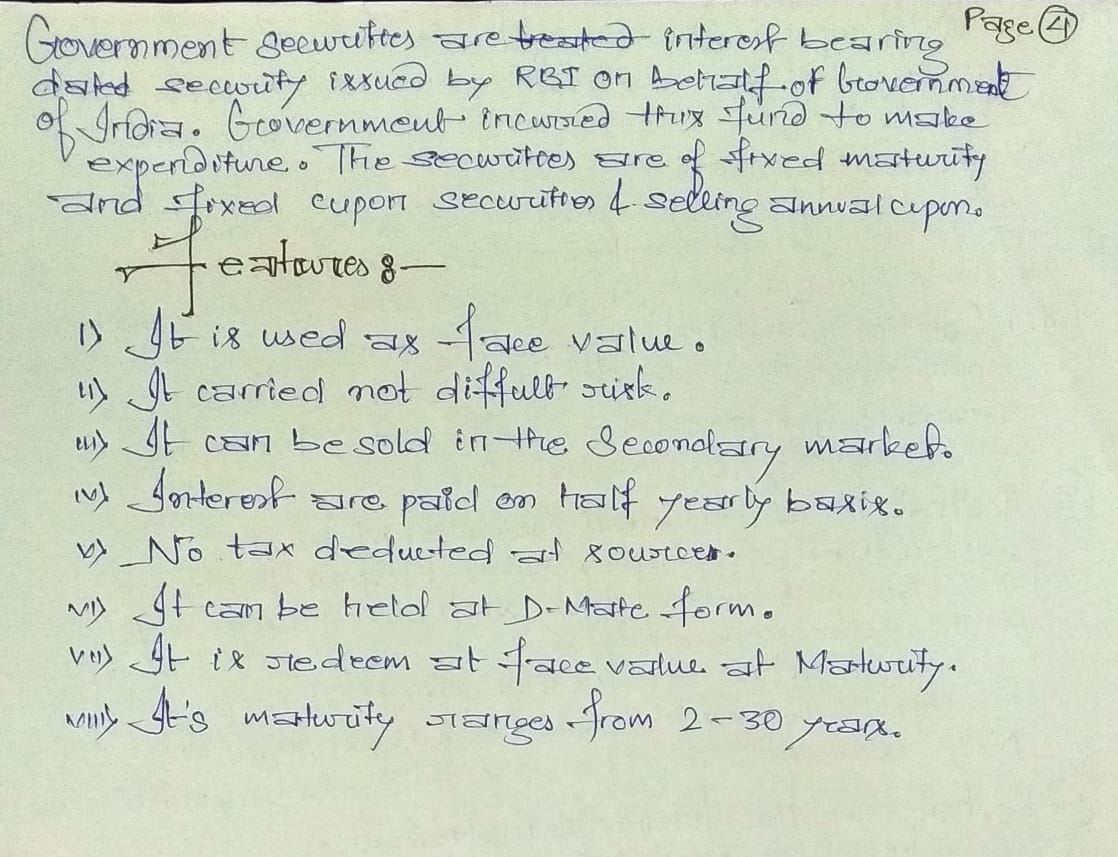 Page 4
Government securities are treated interest bearing
dated security issued by RBI on behalf of Government
of India. Government incurred this fund to make
expenditure. The securities are of fixed maturity
and fixed cupon securities & selling annual cupon.
Features :-
i) It is used as face value.
ii) It carried not diffult risk.
iii) It can be sold in the Secondary market.
iv) Interest are paid on half yearly basis.
v) No tax deducted at sources.
vi) It can be held at D-Mate form.
vii) It is redeem at face value at Maturity.
viii) It's maturity ranges from 2-30 years.